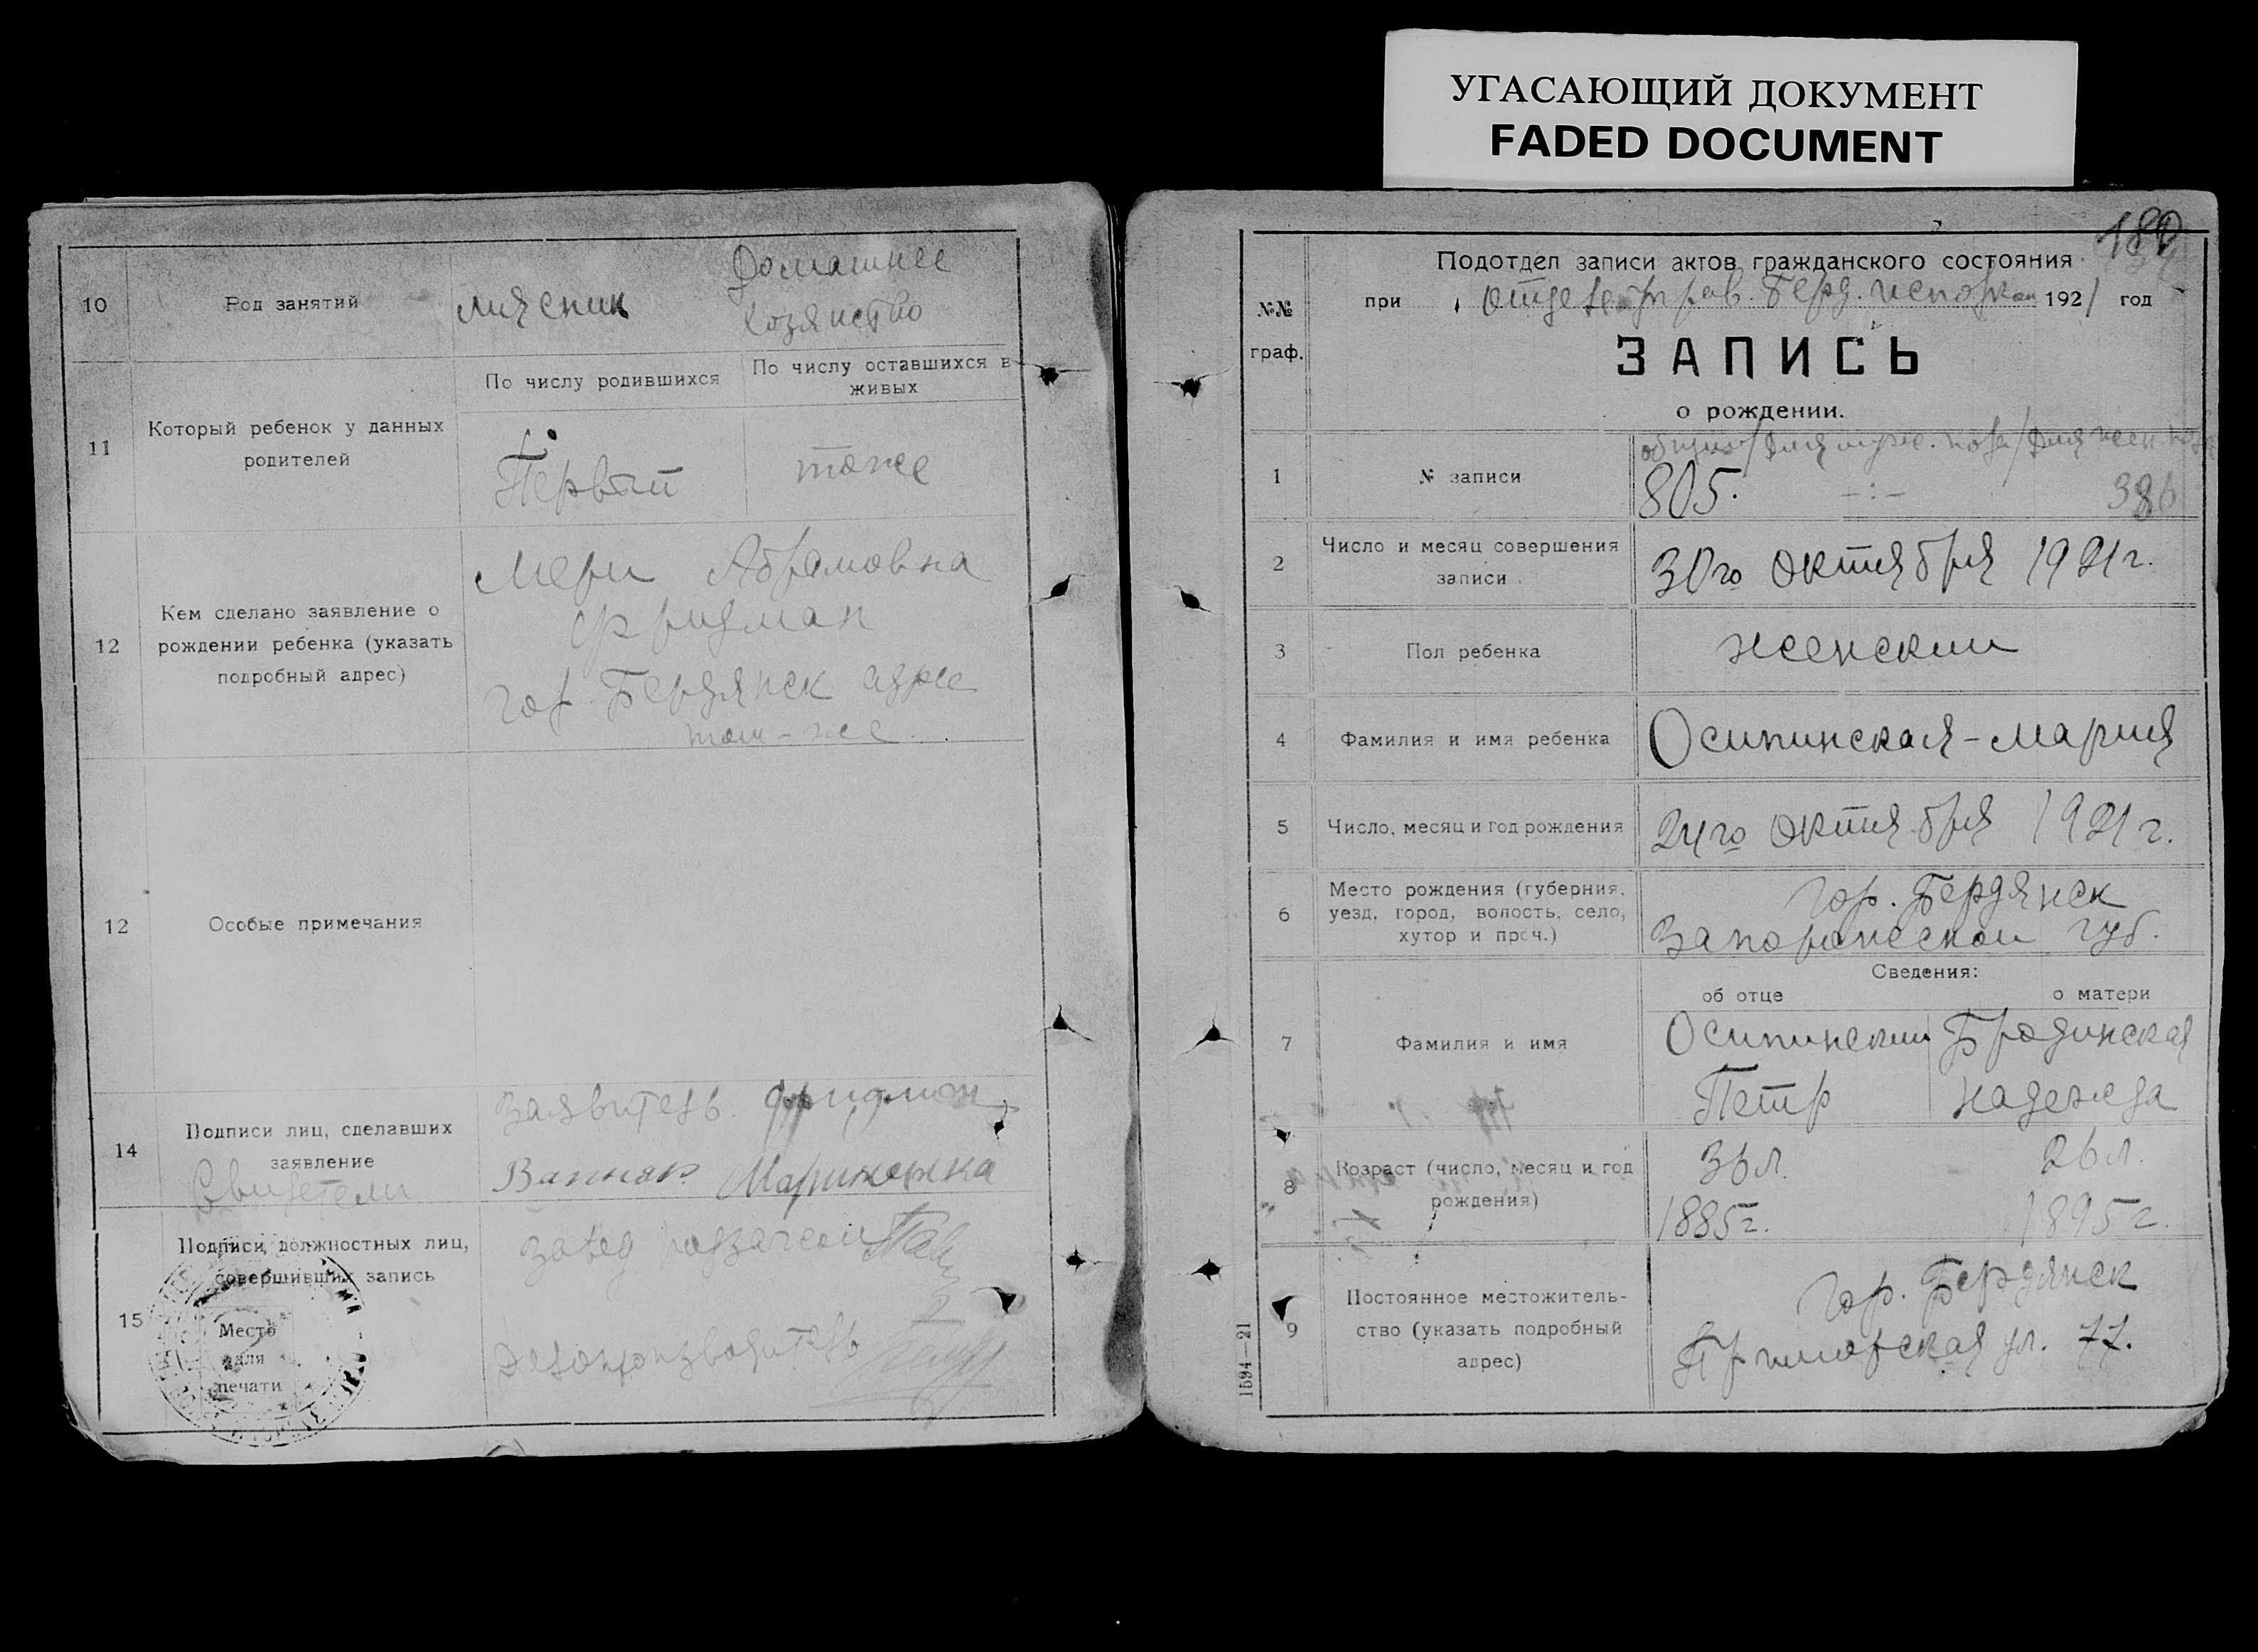 УГАСАЮЩИЙ ДОКУМЕНТ
FADED DOCUMENT
10
Род занятий
мясник
Домашнее
хозяиство
11
Который ребенок у данных
родителей
По числу родившихся
По числу оставшихся в
живых
Первый
тоже
12
Кем сделано заявление о
рождении ребенка (указать
подробный адрес)
Мери Абрамовна
Фридман
гор. Бердянск
12
Особые примечания
14
Подписи лиц, сделавших
заявление
Свидетели
Заявитель Фридман
15
Подписи должностных лиц,
совершивших запись
Место
для
печати
Завед подзагсом
Делопроизводитель
180
№№
граф.
Подотдел записи актов гражданского состояния
при Отделе Управ. Берд. исполком 1921 год
ЗАПИСЬ
о рождении.
1
№ записи
общий/для мужс. пола/для женс. пола
805. -:- 386
2
Число и месяц совершения
записи
30го октября 1921 г.
3
Пол ребенка
женскии
4
Фамилия и имя ребенка
Осипинская-Мария
5
Число, месяц и год рождения
24го октября 1921 г.
6
Место рождения (губерния,
уезд, город, волость, село,
хутор и проч.)
Гор. Бердянск
Запорожескои губ.
Сведения:
об отце
о матери
7
Фамилия и имя
Осипинскии
Петр
Бродинская
Надежда
8
Возраст (число, месяц и год
рождения)
36 л.
1885 г.
26 л.
1895 г.
9
Постоянное местожитель-
ство (указать подробный
адрес)
Гор. Бердянск
Приморская ул. 77.
1594—21